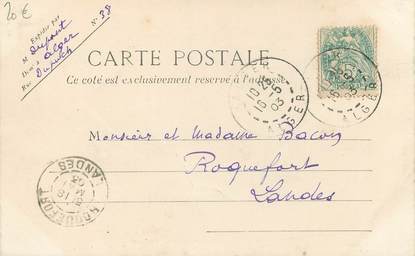 20€
Expédié par
N° 38
M Dupont
Dem t à Alger
Rue Dupuch
CARTE POSTALE
Ce côté est exclusivement réservé à l'adresse
ALGER
10 25
15-5
03
ALGER
Monsieur et Madame Bacon
Roquefort
Landes
ROQUEFORT
LANDES
18
03